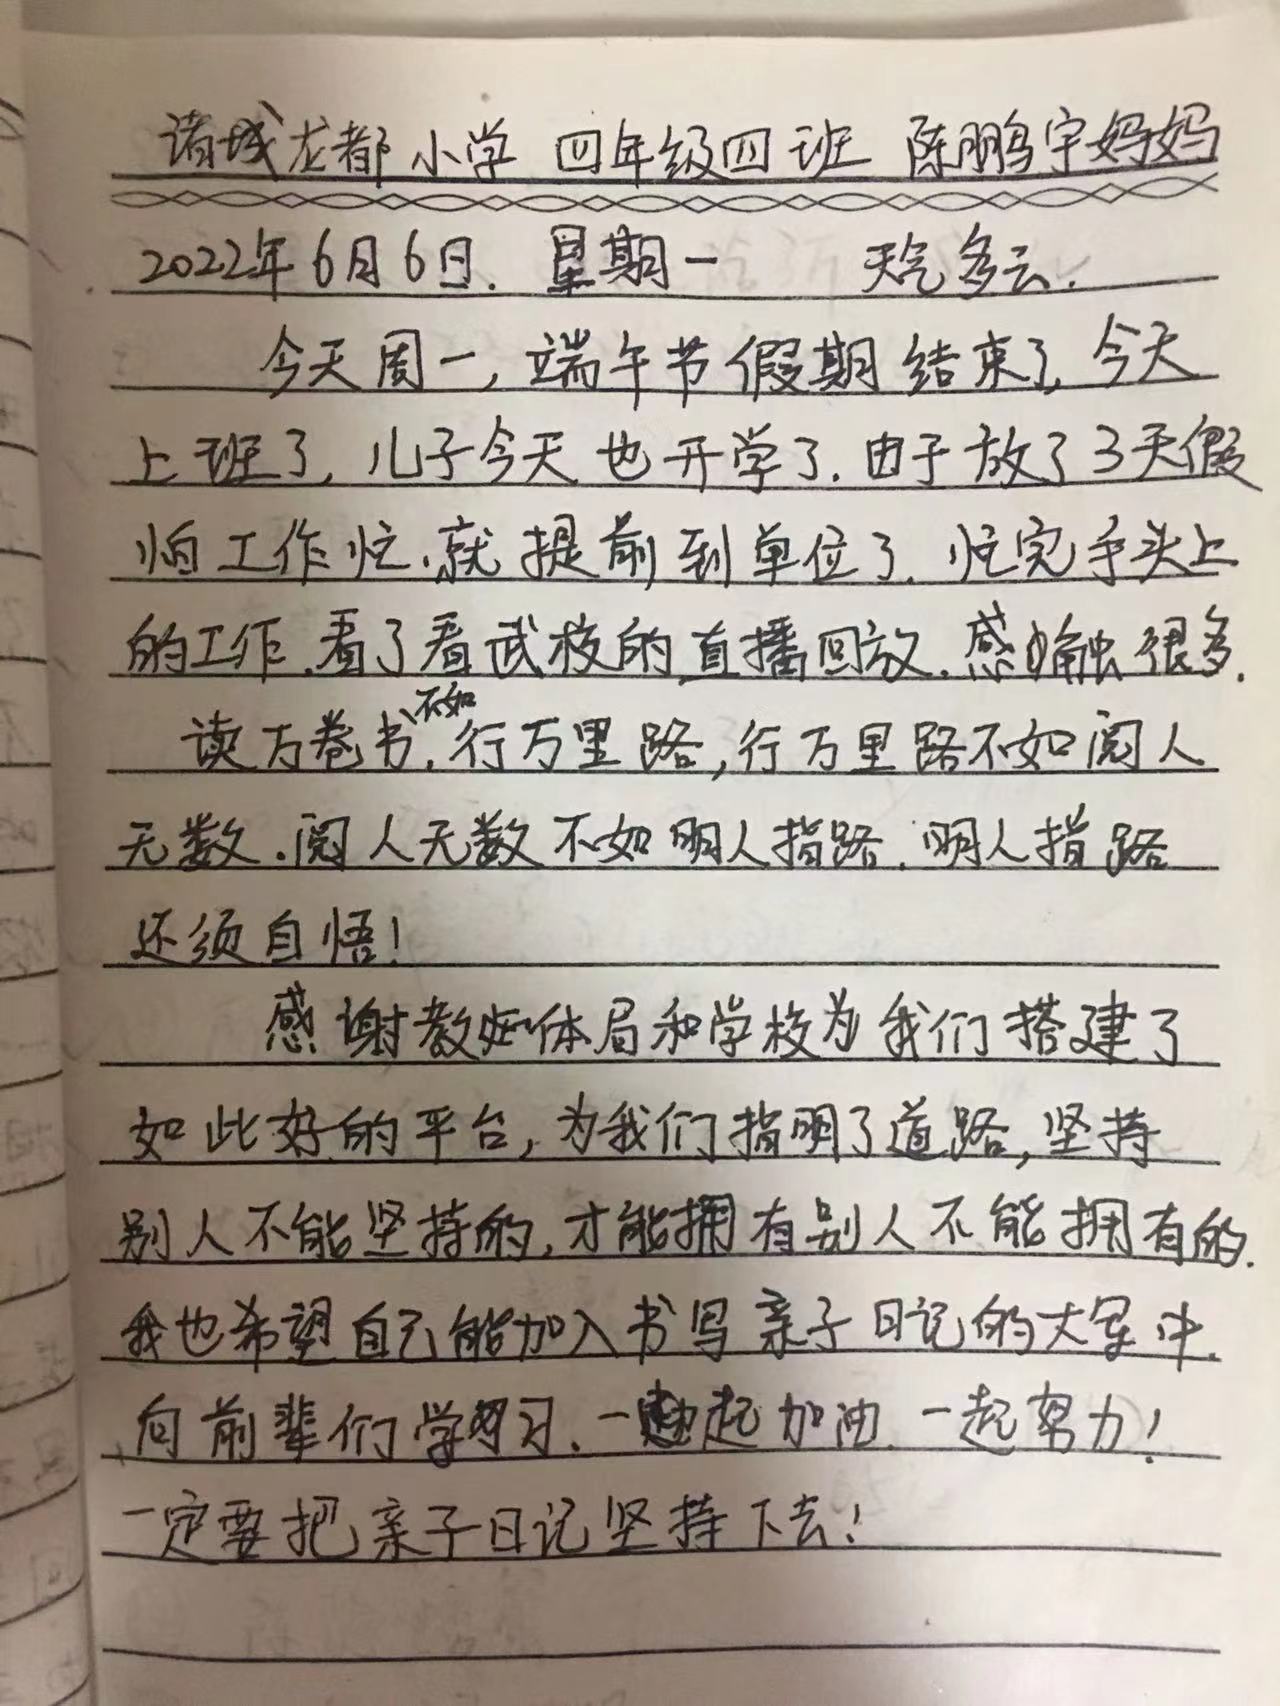 诸城龙都小学 四年级四班 陈鹏宇妈妈
2022年6月6日. 星期一 天气多云.
今天周一, 端午节假期结束了, 今天
上班了, 儿子今天也开学了. 由于放了3天假
怕工作忙, 就提前到单位了. 忙完手头上
的工作. 看了看武校的直播回放. 感触很多.
读万卷书, 不如行万里路, 行万里路不如阅人
无数. 阅人无数不如明人指路. 明人指路
还须自悟!
感谢教体局和学校为我们搭建了
如此好的平台, 为我们指明了道路, 坚持
别人不能坚持的, 才能拥有别人不能拥有的.
我也希望自己能加入书写亲子日记的大军中.
向前辈们学习. 一起加油. 一起努力!
一定要把亲子日记坚持下去!